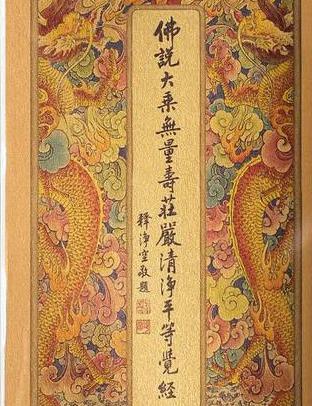 佛説大乘無量壽莊嚴清淨平等覺經
釋淨空敬題